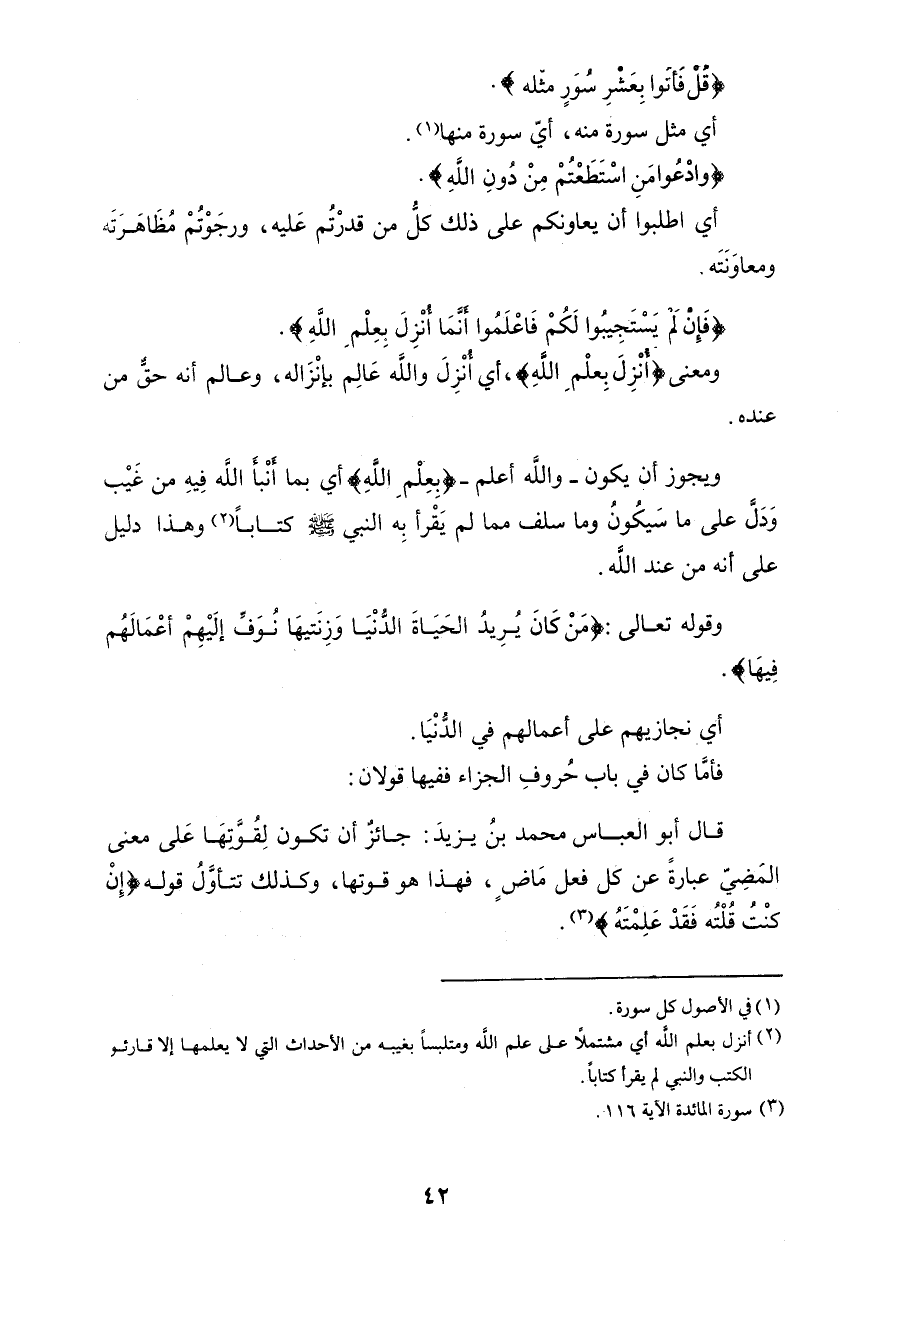 ﴿قُلْ فَأتَوا بِعَشْرِ سُوَرٍ مثّله﴾.
أي مثل سورة منه، أيّ سورة منها(١).
﴿وادْعُوا مَنِ اسْتَطَعْتُمْ مِنْ دُونِ اللَّهِ﴾.
أي اطلبوا أن يعاونكم على ذلك كلُّ من قدرْتُم عَليه، ورجَوْتُمْ مُظَاهَرَتَه
ومعاوَنَتَه.
﴿فَإِنْ لَمْ يَسْتَجِيبُوا لَكُمْ فَاعْلَمُوا أَنَّمَا أُنْزِلَ بِعِلْمِ اللَّهِ﴾.
ومعنى ﴿أُنْزِلَ بِعلْمِ اللَّهِ﴾، أي أُنْزِلَ واللَّه عَالِم بإنْزَاله، وعالم أنه حقٌّ من
عنده.
ويجوز أن يكون - واللَّه أعلم - ﴿بِعِلْمِ اللَّهِ﴾ أي بما أَنْبأَ اللَّه فِيهِ من غَيْب
وَدَلَّ على ما سَيكُونُ وما سلف مما لم يَقْرأ بِه النبي ﷺ كتاباً(٢) وهذا دليل
على أنه من عند اللَّه.
وقوله تعالى: ﴿مَنْ كَانَ يُرِيدُ الحَيَاةَ الدُّنْيَا وَزِنَتيهَا نُوَفِّ إلَيْهِمْ أعْمَالَهُم
فِيهَا﴾.
أي نجازيهم على أعمالهم في الدُّنْيَا.
فأمَّا كان في باب حُروفِ الجزاء ففيها قولان:
قال أبو العباس محمد بنُ يزيدَ: جائزٌ أن تكون لِقُوَّتِهَا عَلى معنى
المَضِيّ عبارةً عن كل فعل مَاضٍ، فهذا هو قوتها، وكذلك تتأوَّلُ قوله ﴿إِنْ
كنْتُ قُلْتُه فَقَدْ عَلِمْتَهُ﴾(٣).
(١) في الأصول كل سورة.
(٢) أنزل بعلم اللَّه أي مشتملًا على علم اللَّه ومتلبساً بغيبه من الأحداث التي لا يعلمها إلا قارئو
الكتب والنبي لم يقرأ كتاباً.
(٣) سورة المائدة الآية ١١٦.
٤٢